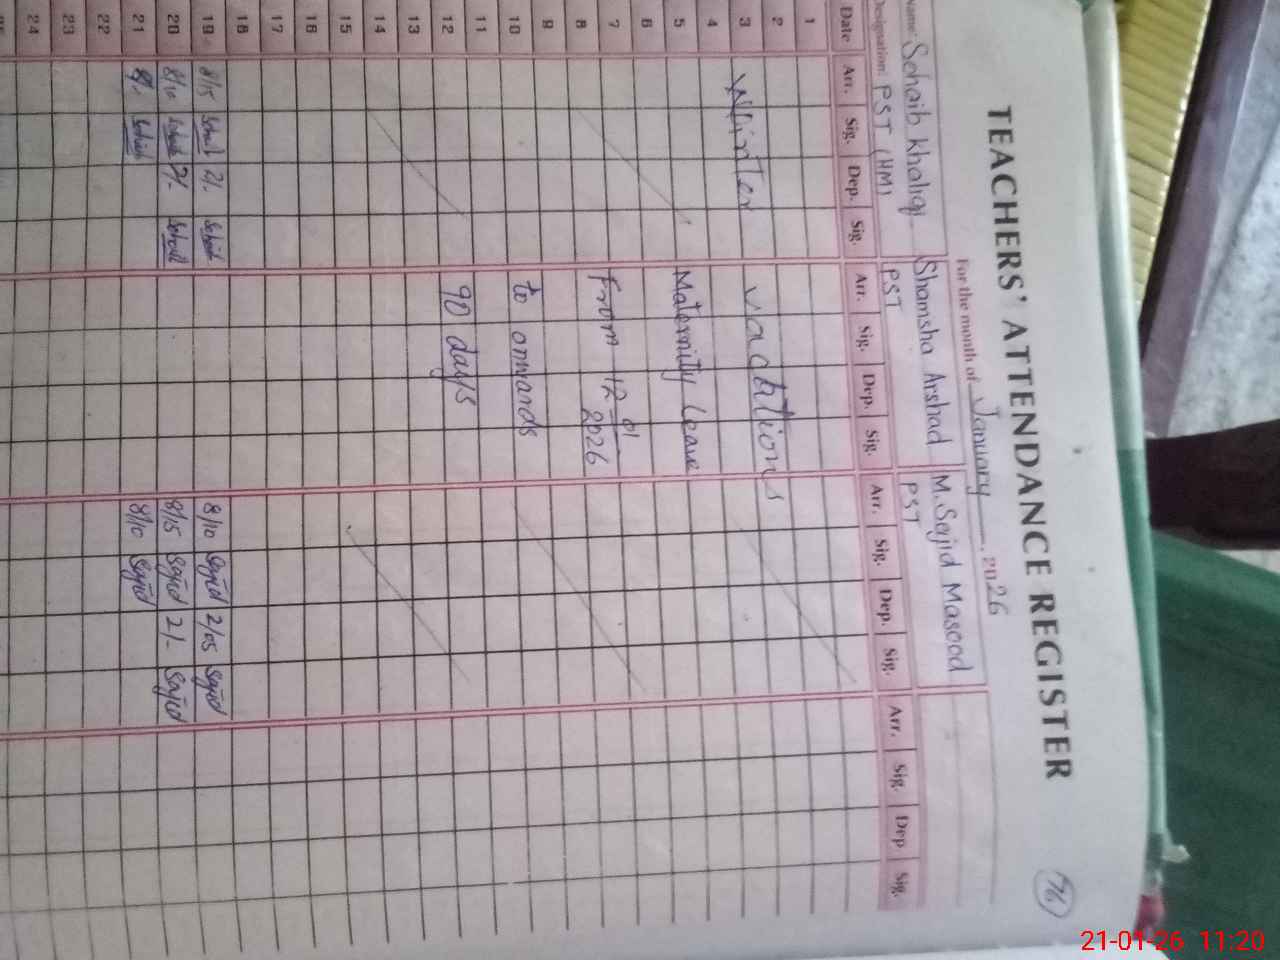 TEACHERS' ATTENDANCE REGISTER
76
For the month of January 2026
Name: Sohaib Khaliq Shamsha Arshad M. Sajid Masood
Designation: PST (HM) PST PST
Date Arr. Sig. Dep. Sig. Arr. Sig. Dep. Sig. Arr. Sig. Dep. Sig. Arr. Sig. Dep Sig.
1
2
3 Winter vacations
4
5 Maternity Leave
6
7 From 12-01-2026
8
9
10 to onwards
11
12 90 days
13
14
15
16
17
18
19 8/15 Sohaib 2/- Sohaib 8/10 Sajid 2/05 Sajid
20 8/10 Sohaib 2/- Sohaib 8/15 Sajid 2/- Sajid
21 8/- Sohaib 8/10 Sajid
22
23
24
21-01-26 11:20